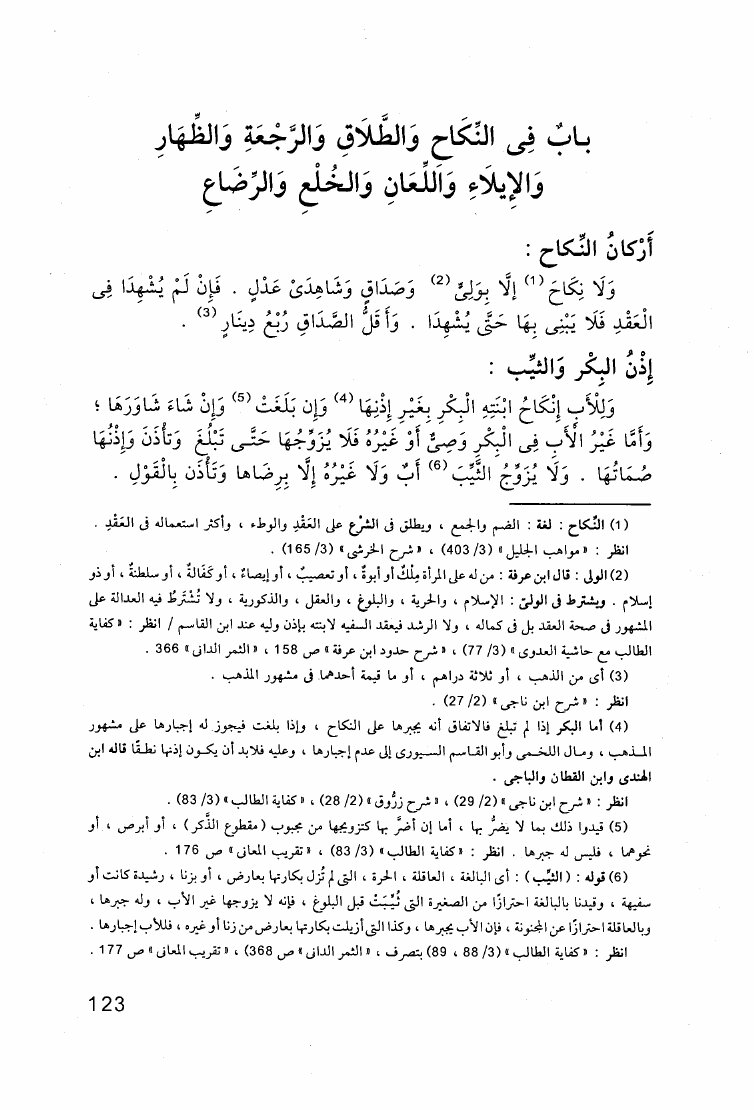 بابٌ فِى النِّكَاحِ وَالطَّلَاقِ وَالرَّجْعَةِ وَالظِّهَارِ
وَالإِيلَاءِ وَاللِّعَانِ وَالخُلْعِ وَالرِّضَاعِ
أَرْكانُ النِّكاحِ :
وَلَا نِكَاحَ (1) إلَّا بِوَلِيٍّ (2) وَصَدَاقٍ وَشَاهِدَىْ عَدْلٍ . فَإِنْ لَمْ يُشْهِدَا فِى
الْعَقْدِ فَلَا يَبْنِى بِهَا حَتَّى يُشْهِدَا . وَأَقَلُّ الصَّدَاقِ رُبْعُ دِينَارٍ (3) .
إِذْنُ البِكْرِ وَالثيِّب :
وَلِلأَبِ إِنْكَاحُ ابْنَتِهِ الْبِكْرِ بِغَيْرِ إِذْنِهَا (4) وَإِن بَلَغَتْ (5) وَإِنْ شَاءَ شَاوَرَهَا ؛
وَأَمَّا غَيْرُ الْأَبِ فِى الْبِكْرِ وَصِىٌّ أَوْ غَيْرُهُ فَلَا يُزَوِّجُهَا حَتَّى تَبْلُغَ وَتَأْذَنَ وَإِذْنُهَا
صُمَاتُهَا . وَلَا يُزَوِّجُ الثَّيِّبَ (6) أَبٌ وَلَا غَيْرُهُ إِلَّا بِرِضَاها وَتَأْذَن بِالْقَوْلِ .
(1) النِّكاح : لغة : الضم والجمع ، ويطلق فى الشرع على العَقْدِ والوطء ، وأكثر استعماله فى العَقْدِ .
انظر : « مواهب الجليل » (3/ 403) ، « شرح الخرشى » (3/ 165) .
(2) الولى : قال ابن عرفة : من له على المرأة مِلْكٌ أو أبوةٌ ، أو تعصيبٌ ، أو إيصاءٌ ، أو كَفَالةٌ ، أو سلطنةٌ ، أو ذو
إسلام . ويشترط فى الولىّ : الإسلام ، والحرية ، والبلوغ ، والعقل ، والذكورية ، ولا تُشْتَرَطُ فيه العدالة على
المشهور فى صحة العقد بل فى كماله ، ولا الرشد فيعقد السفيه لابنته بإذن وليه عند ابن القاسم / انظر : « كفاية
الطالب مع حاشية العدوى » (3/ 77) ، « شرح حدود ابن عرفة » ص 158 ، « الثمر الدانى » 366 .
(3) أى من الذهب ، أو ثلاثة دراهم ، أو ما قيمة أحدهما فى مشهور المذهب .
انظر : « شرح ابن ناجى » (2/ 27) .
(4) أما البكر إذا لم تبلغ فالاتفاق أنه يجبرها على النكاح ، وإذا بلغت فيجوز له إجبارها على مشهور
المذهب ، ومال اللخمى وأبو القاسم السيورى إلى عدم إجبارها ، وعليه فلابد أن يكون إذنها نطقًا قاله ابن
الهندى وابن القطان والباجى .
انظر : « شرح ابن ناجى » (2/ 29) ، « شرح زرُّوق » (2/ 28) ، « كفاية الطالب » (3/ 83) .
(5) قيدوا ذلك بما لا يضرُّ بها ، أما إن أضرَّ بها كتزويجها من مجبوب (مقطوع الذَّكر) ، أو أبرص ، أو
نحوهما ، فليس له جبرها . انظر : « كفاية الطالب » (3/ 83) ، « تقريب المعانى » ص 176 .
(6) قوله : (الثيِّب) : أى البالغة ، العاقلة ، الحرة ، التى لم تُزل بكارتها بعارض ، أو بزنا ، رشيدة كانت أو
سفيهة ، وقيدنا بالبالغة احترازًا من الصغيرة التى ثُيِّبَتْ قبل البلوغ ، فإنه لا يزوجها غير الأب ، وله جبرها ،
وبالعاقلة احترازًا عن المجنونة ، فإن الأب يجبرها ، وكذا التى أزيلت بكارتها بعارض من زنا أو غيره ، فللأب إجبارها .
انظر : « كفاية الطالب » (3/ 88 ، 89) بتصرف ، « الثمر الدانى » (ص 368) ، « تقريب المعانى » ص 177 .
123